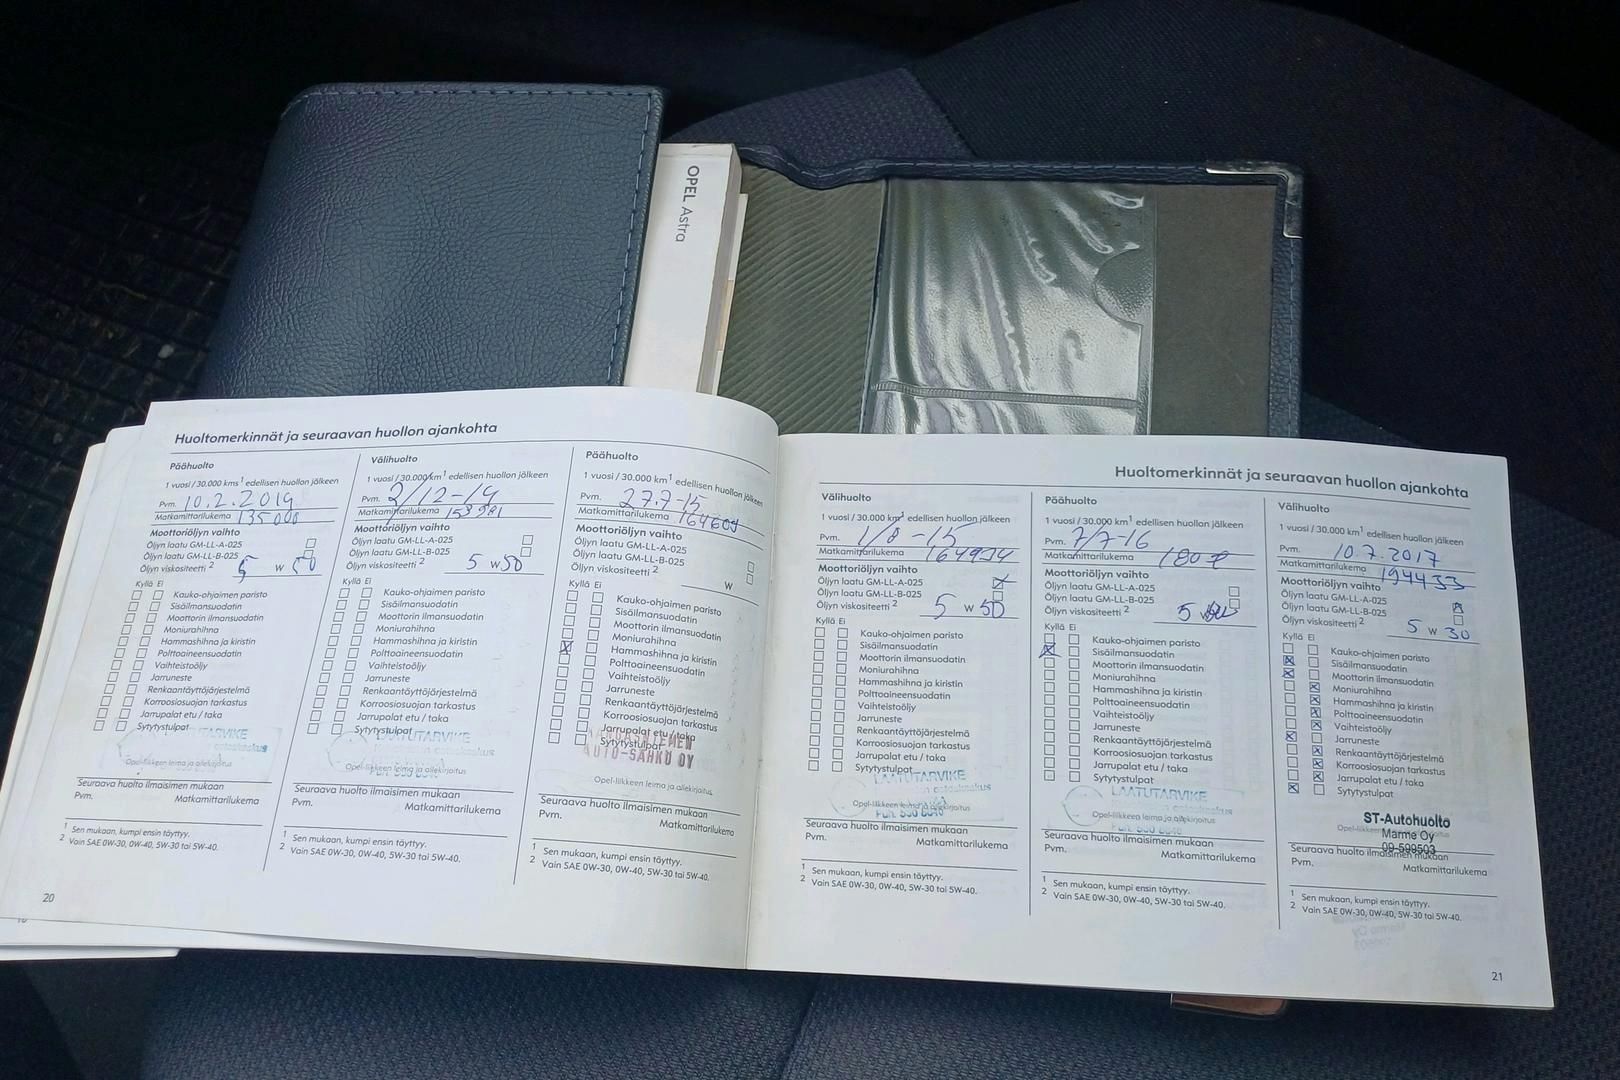 OPEL Astra
Huoltomerkinnät ja seuraavan huollon ajankohta
Päähuolto
1 vuosi / 30.000 kms¹ edellisen huollon jälkeen
Pvm. 10.2.2014
Matkamittarilukema 135000
Moottoriöljyn vaihto
Öljyn laatu GM-LL-A-025
Öljyn laatu GM-LL-B-025
Öljyn viskositeetti ² 5 W 50
Kyllä Ei
Kauko-ohjaimen paristo
Sisäilmansuodatin
Moottorin ilmansuodatin
Moniurahihna
Hammashihna ja kiristin
Polttoaineensuodatin
Vaihteistoöljy
Jarruneste
Renkaantäyttöjärjestelmä
Korroosiosuojan tarkastus
Jarrupalat etu / taka
Sytytystulpat
Opel-liikkeen leima ja allekirjoitus
Seuraava huolto ilmaisimen mukaan
Pvm. Matkamittarilukema
¹ Sen mukaan, kumpi ensin täyttyy.
² Vain SAE 0W-30, 0W-40, 5W-30 tai 5W-40.
20
Välihuolto
1 vuosi / 30.000 km¹ edellisen huollon jälkeen
Pvm. 2/12-14
Matkamittarilukema 153981
Moottoriöljyn vaihto
Öljyn laatu GM-LL-A-025
Öljyn laatu GM-LL-B-025
Öljyn viskositeetti ² 5 W 50
Kyllä Ei
Kauko-ohjaimen paristo
Sisäilmansuodatin
Moottorin ilmansuodatin
Moniurahihna
Hammashihna ja kiristin
Polttoaineensuodatin
Vaihteistoöljy
Jarruneste
Renkaantäyttöjärjestelmä
Korroosiosuojan tarkastus
Jarrupalat etu / taka
Sytytystulpat
Opel-liikkeen leima ja allekirjoitus
Seuraava huolto ilmaisimen mukaan
Pvm. Matkamittarilukema
¹ Sen mukaan, kumpi ensin täyttyy.
² Vain SAE 0W-30, 0W-40, 5W-30 tai 5W-40.
Päähuolto
1 vuosi / 30.000 km¹ edellisen huollon jälkeen
Pvm. 27.7-15
Matkamittarilukema 164609
Moottoriöljyn vaihto
Öljyn laatu GM-LL-A-025
Öljyn laatu GM-LL-B-025
Öljyn viskositeetti ² W
Kyllä Ei
Kauko-ohjaimen paristo
Sisäilmansuodatin
Moottorin ilmansuodatin
Moniurahihna
Hammashihna ja kiristin
Polttoaineensuodatin
Vaihteistoöljy
Jarruneste
Renkaantäyttöjärjestelmä
Korroosiosuojan tarkastus
Jarrupalat etu / taka
Sytytystulpat
AUTO-SÄHKÖ OY
Opel-liikkeen leima ja allekirjoitus
Seuraava huolto ilmaisimen mukaan
Pvm. Matkamittarilukema
¹ Sen mukaan, kumpi ensin täyttyy.
² Vain SAE 0W-30, 0W-40, 5W-30 tai 5W-40.
Huoltomerkinnät ja seuraavan huollon ajankohta
Välihuolto
1 vuosi / 30.000 km¹ edellisen huollon jälkeen
Pvm. 1/8-15
Matkamittarilukema
Moottoriöljyn vaihto
Öljyn laatu GM-LL-A-025
Öljyn laatu GM-LL-B-025
Öljyn viskositeetti ² 5 W 50
Kyllä Ei
Kauko-ohjaimen paristo
Sisäilmansuodatin
Moottorin ilmansuodatin
Moniurahihna
Hammashihna ja kiristin
Polttoaineensuodatin
Vaihteistoöljy
Jarruneste
Renkaantäyttöjärjestelmä
Korroosiosuojan tarkastus
Jarrupalat etu / taka
Sytytystulpat
LAATUTARVIKE
Opel-liikkeen leima ja allekirjoitus
Seuraava huolto ilmaisimen mukaan
Pvm. Matkamittarilukema
¹ Sen mukaan, kumpi ensin täyttyy.
² Vain SAE 0W-30, 0W-40, 5W-30 tai 5W-40.
Päähuolto
1 vuosi / 30.000 km¹ edellisen huollon jälkeen
Pvm. 7/7-16
Matkamittarilukema
Moottoriöljyn vaihto
Öljyn laatu GM-LL-A-025
Öljyn laatu GM-LL-B-025
Öljyn viskositeetti ² 5 W
Kyllä Ei
Kauko-ohjaimen paristo
Sisäilmansuodatin
Moottorin ilmansuodatin
Moniurahihna
Hammashihna ja kiristin
Polttoaineensuodatin
Vaihteistoöljy
Jarruneste
Renkaantäyttöjärjestelmä
Korroosiosuojan tarkastus
Jarrupalat etu / taka
Sytytystulpat
LAATUTARVIKE
Opel-liikkeen leima ja allekirjoitus
Seuraava huolto ilmaisimen mukaan
Pvm. Matkamittarilukema
¹ Sen mukaan, kumpi ensin täyttyy.
² Vain SAE 0W-30, 0W-40, 5W-30 tai 5W-40.
Välihuolto
1 vuosi / 30.000 km¹ edellisen huollon jälkeen
Pvm. 10.7.2017
Matkamittarilukema 194433
Moottoriöljyn vaihto
Öljyn laatu GM-LL-A-025
Öljyn laatu GM-LL-B-025
Öljyn viskositeetti ² 5 W 30
Kyllä Ei
Kauko-ohjaimen paristo
Sisäilmansuodatin
Moottorin ilmansuodatin
Moniurahihna
Hammashihna ja kiristin
Polttoaineensuodatin
Vaihteistoöljy
Jarruneste
Renkaantäyttöjärjestelmä
Korroosiosuojan tarkastus
Jarrupalat etu / taka
Sytytystulpat
ST-Autohuolto
Marme Oy
09-599503
Seuraava huolto ilmaisimen mukaan
Pvm. Matkamittarilukema
¹ Sen mukaan, kumpi ensin täyttyy.
² Vain SAE 0W-30, 0W-40, 5W-30 tai 5W-40.
21